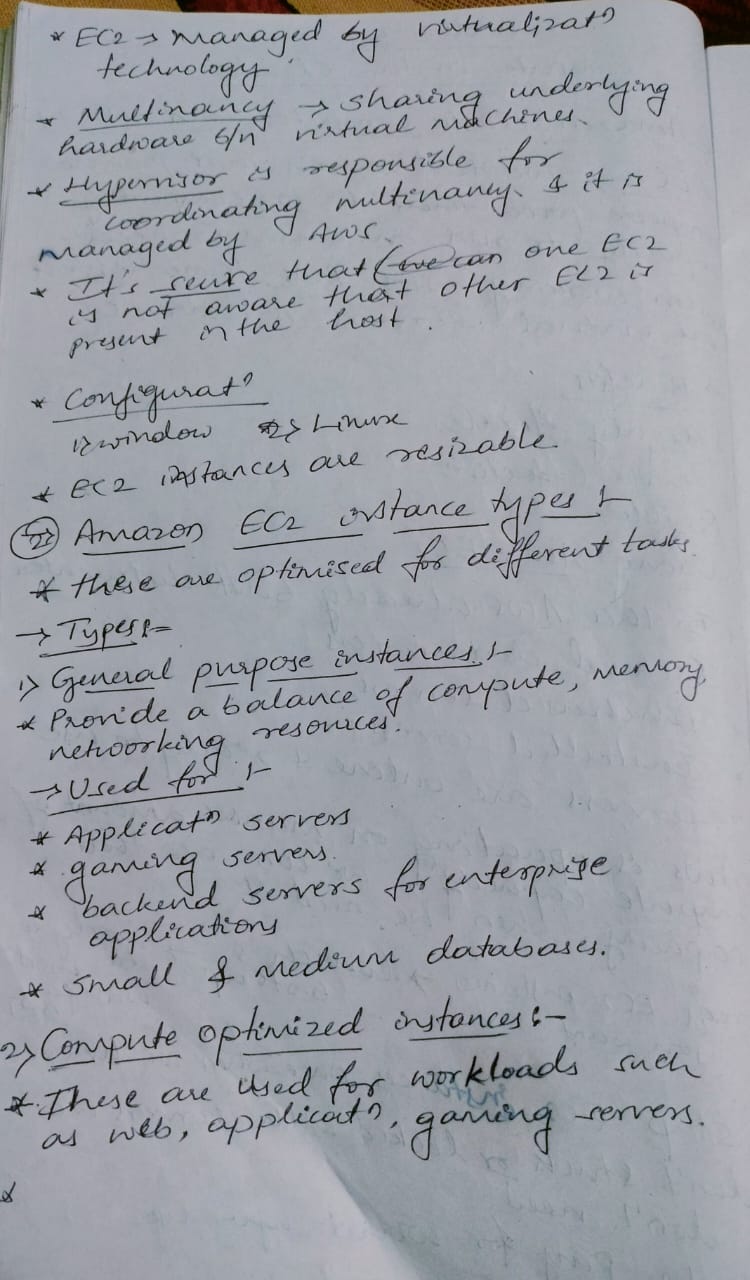 * EC2 → Managed by virtualizatn
technology.
* Multinancy → sharing underlying
hardware b/n virtual machines.
* Hypervisor is responsible for
coordinating multinancy. & it is
managed by AWS.
* It's secure that can one EC2
is not aware that other EC2 is
present in the host.
* Configuratn
1> window 2> Linux
* EC2 instances are resizable
Amazon EC2 instance types :-
* these are optimised for different tasks.
→ Types :-
1> General purpose instances :-
* Provide a balance of compute, memory,
networking resources.
→ Used for :-
* Applicatn servers
* gaming servers.
* backend servers for enterprise
applications
* Small & medium databases.
2> Compute optimized instances :-
* These are used for workloads such
as web, applicatn, gaming servers.
*